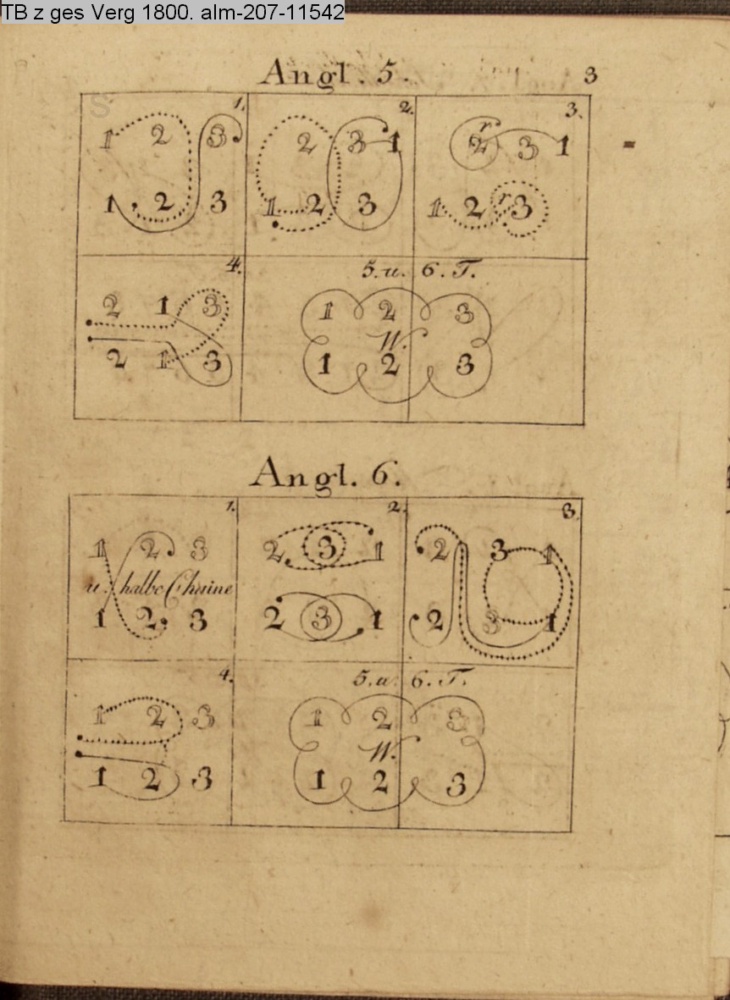 TB z ges Verg 1800. alm-207-11542
Angl. 5.
3
1.
1 2 3
1 2 3
2.
2 3 1
1 2 3
3.
2 3 1
1 2 3
4.
2 1 3
2 1 3
5. u. 6. T.
1 2 3
W.
1 2 3
Angl. 6.
1.
1 2 3
u. halbe Chaine
1 2 3
2.
2 3 1
2 3 1
3.
2 3 1
2 3 1
4.
1 2 3
1 2 3
5. u. 6. T.
1 2 3
W.
1 2 3